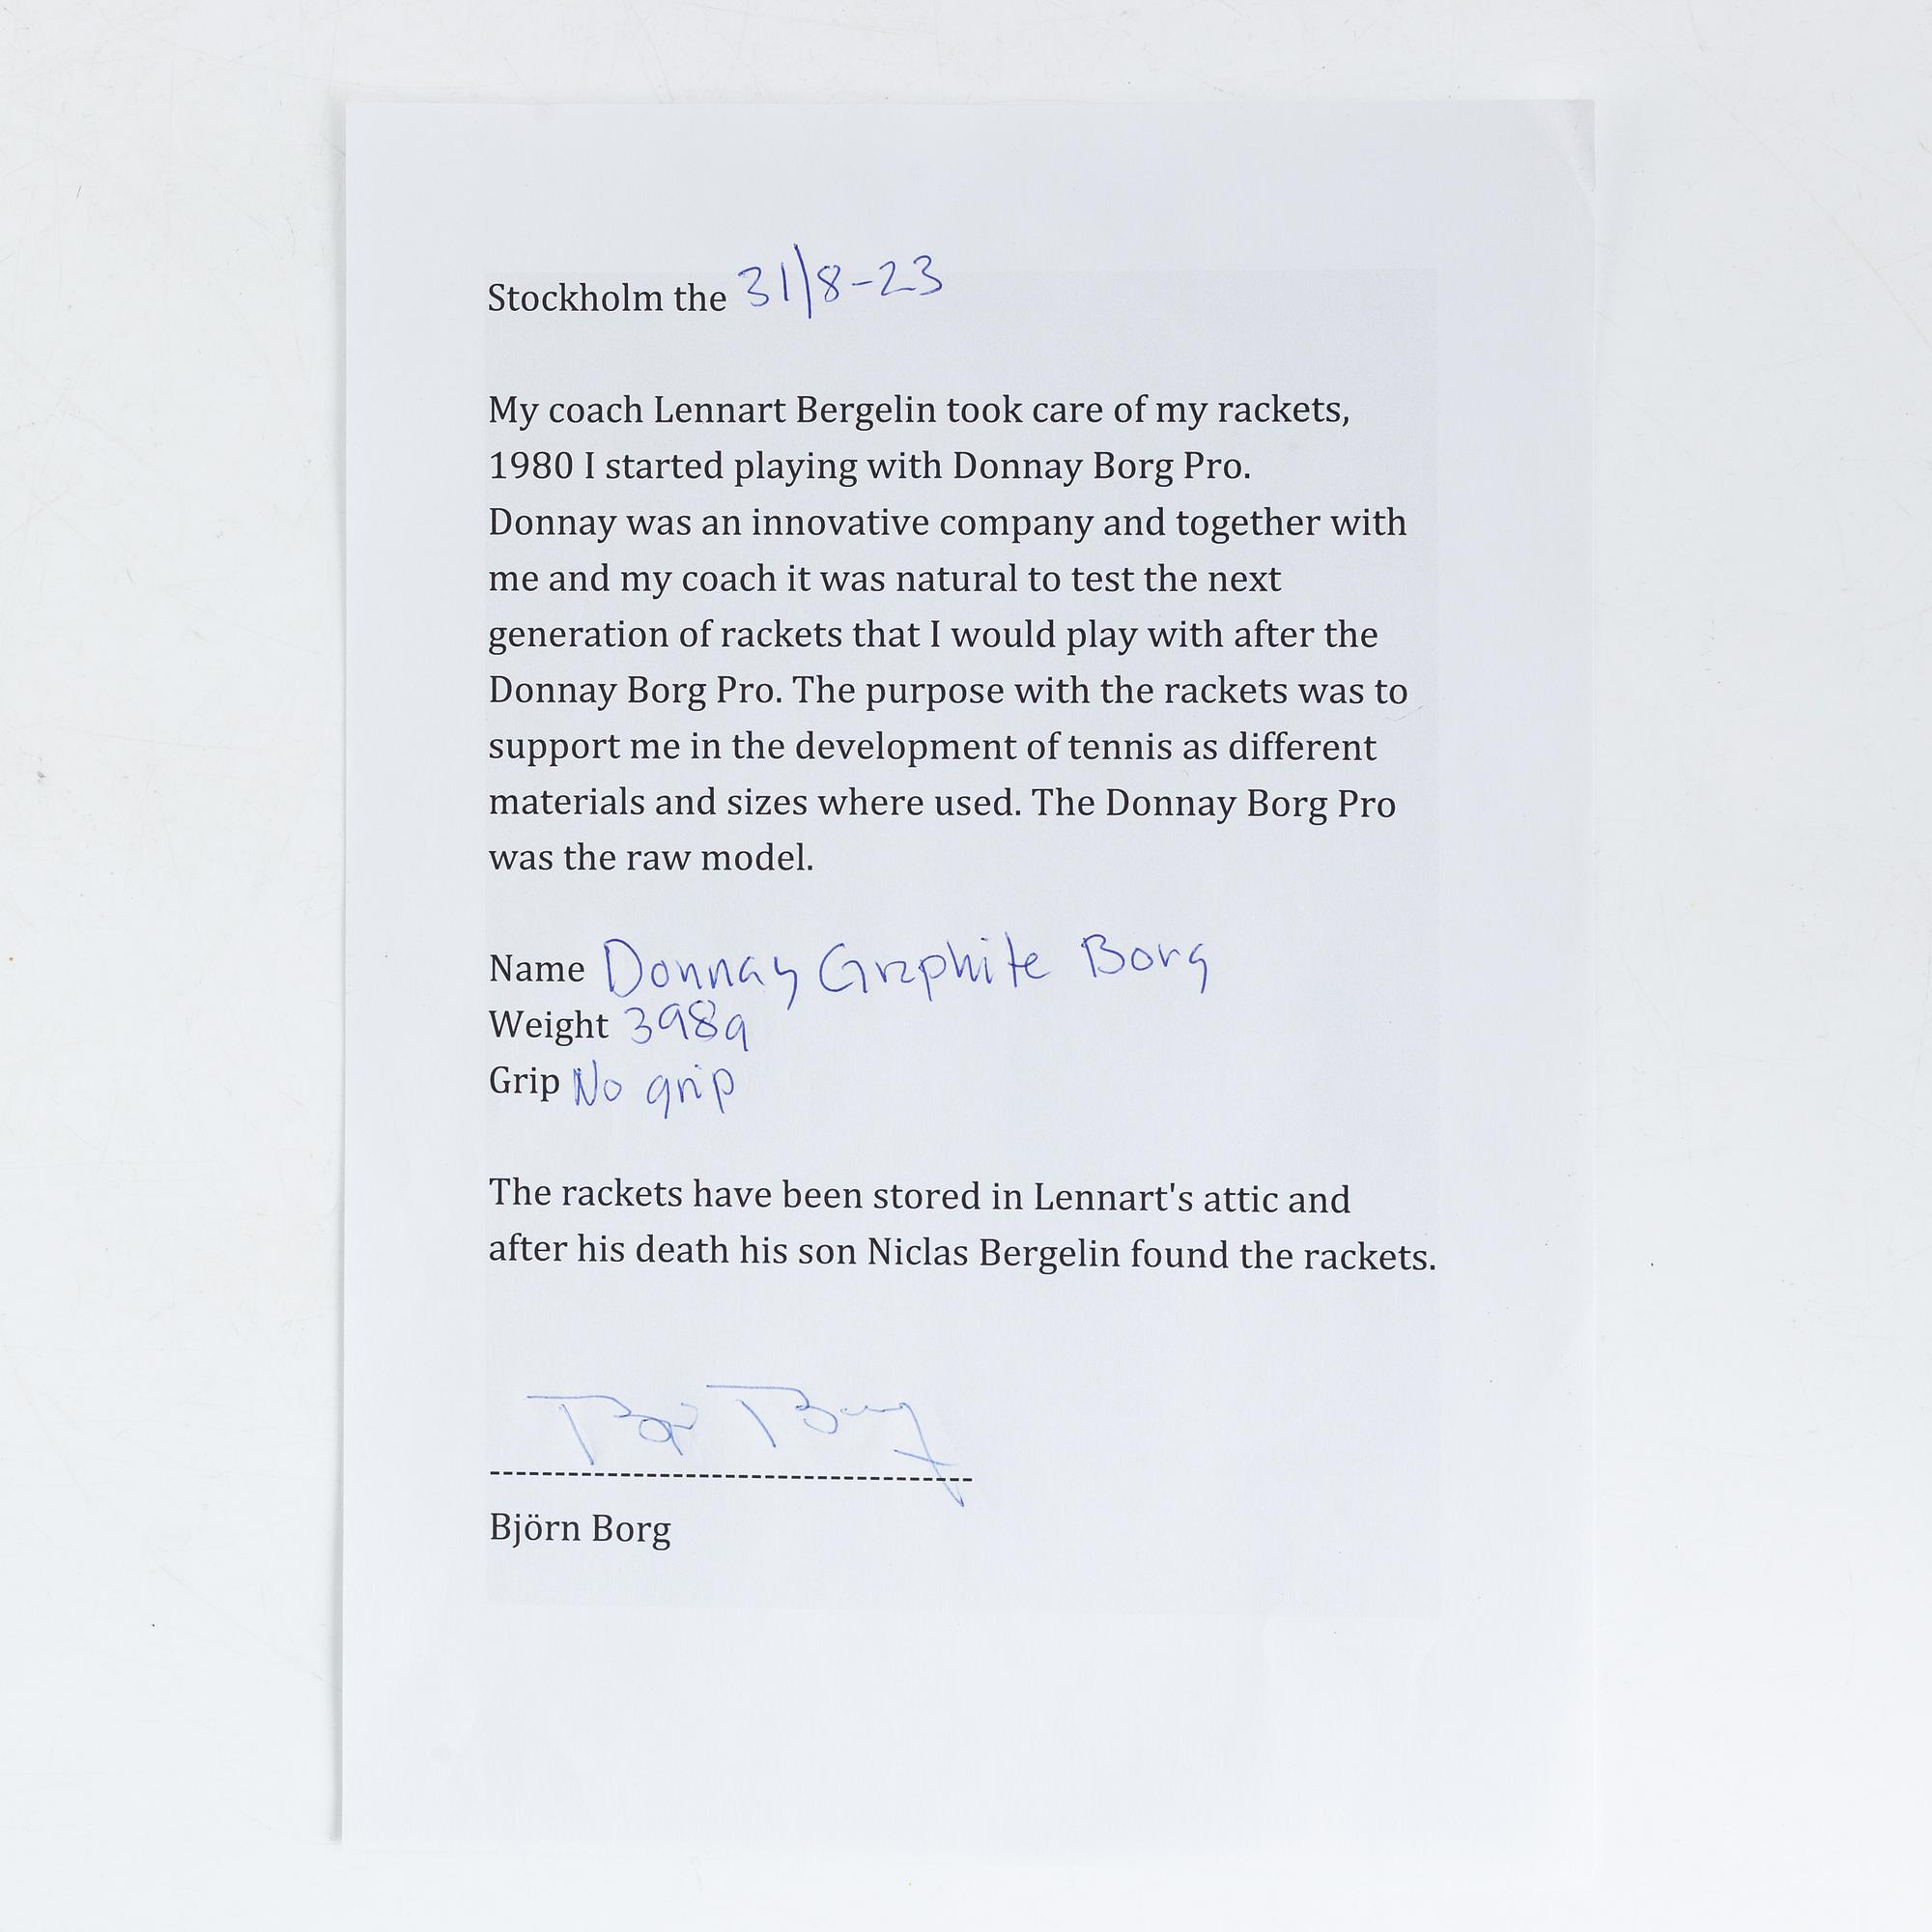 Stockholm the 31/8-23
My coach Lennart Bergelin took care of my rackets,
1980 I started playing with Donnay Borg Pro.
Donnay was an innovative company and together with
me and my coach it was natural to test the next
generation of rackets that I would play with after the
Donnay Borg Pro. The purpose with the rackets was to
support me in the development of tennis as different
materials and sizes where used. The Donnay Borg Pro
was the raw model.
Name Donnay Graphite Borg
Weight 398g
Grip No grip
The rackets have been stored in Lennart's attic and
after his death his son Niclas Bergelin found the rackets.
Björn Borg